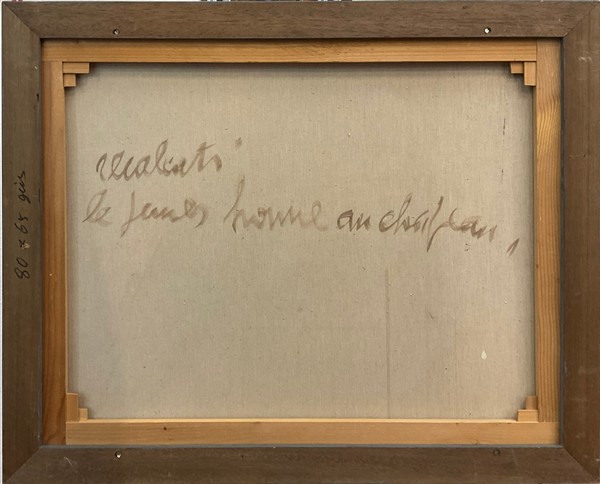 le jeune homme au chapeau,
80 x 65 gris